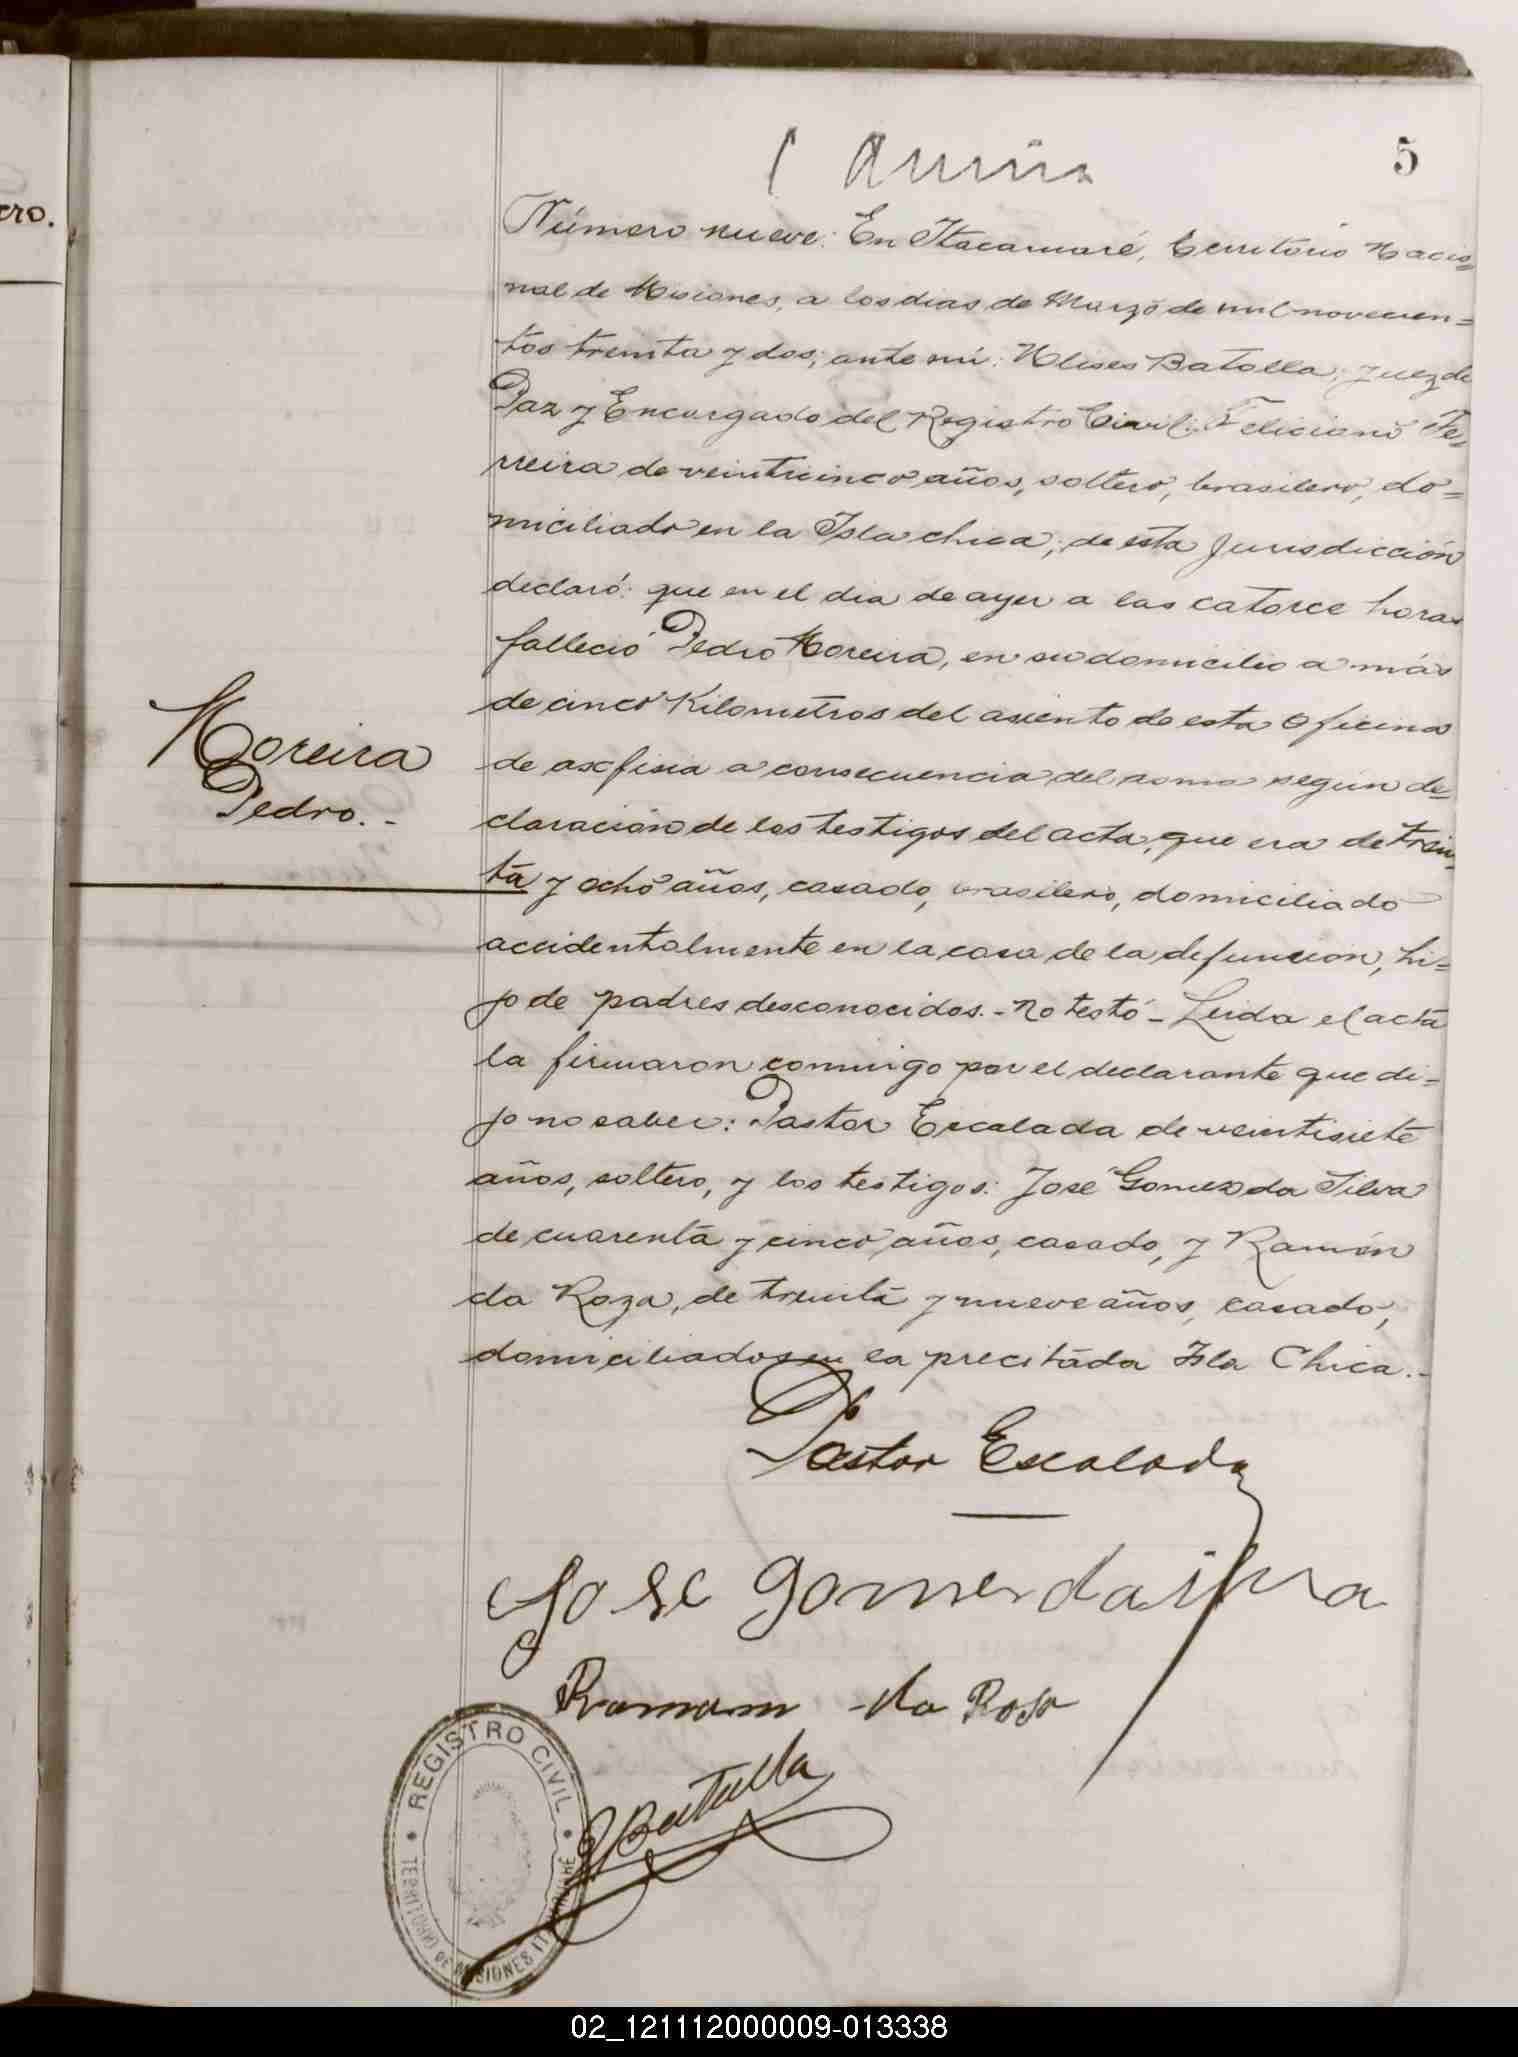 cro.
5
Número nueve: En Itacaruaré, territorio Nacio=
nal de Misiones, a los dias de Marzo de mil novecien=
tos treinta y dos; ante mi: Ulises Batalla, Juez de
Paz y Encargado del Registro Civil: Feliciano Fe=
rreira de veinticinco años, soltero, brasilero, do=
miciliado en la Isla chica, de esta Jurisdicción
declaró: que en el dia de ayer a las catorce horas
falleció Pedro Moreira, en su domicilio a más
de cinco Kilometros del asiento de esta Oficina
de asfisia a consecuencia del asma según de=
Moreira
Pedro.-
claración de los testigos del acta, que era de trein=
ta y ocho años, casado, brasilero, domiciliado
accidentalmente en la casa de la defuncion, hi=
jo de padres desconocidos.- No testó - Leida el acta
la firmaron conmigo por el declarante que di=
jo no saber: Pastor Escalada de veintisiete
años, soltero, y los testigos: José Gomez da Silva
de cuarenta y cinco años, casado, y Ramón
da Roza, de treinta y nueve años, casado,
domiciliados en la precitada Isla Chica.-
Pastor Escalada
Jose gomes da silva
Ramam da Rosa
UBatalla
REGISTRO CIVIL
TERRITORIO DE MISIONES ITACARUARÉ
02_121112000009-013338